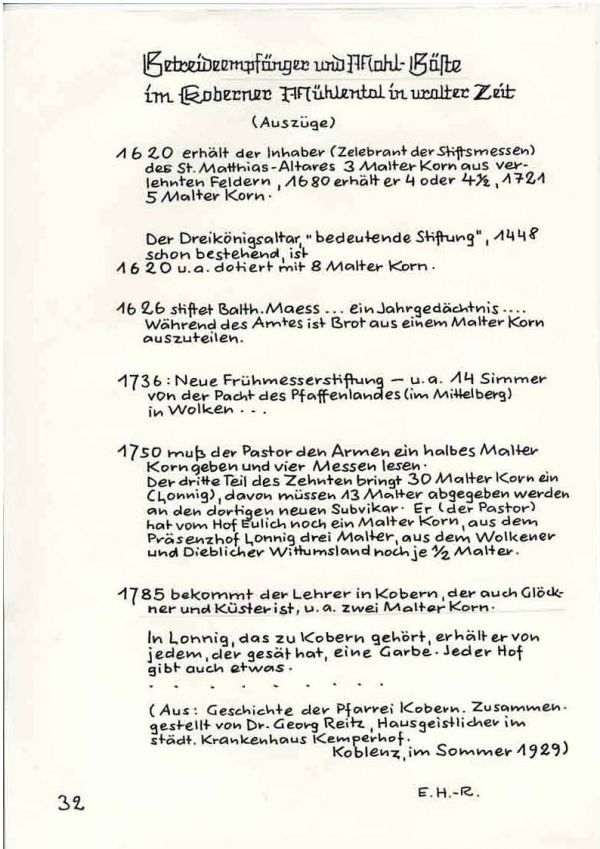 Getreideempfänger und Mahl-Gäste
im Koberner Mühlental in uralter Zeit
(Auszüge)
1620 erhält der Inhaber (Zelebrant der Stiftsmessen)
des St. Matthias-Altares 3 Malter Korn aus ver-
lehnten Feldern, 1680 erhält er 4 oder 4½, 1721
5 Malter Korn.
Der Dreikönigsaltar, "bedeutende Stiftung", 1448
schon bestehend, ist
1620 u.a. dotiert mit 8 Malter Korn.
1626 stiftet Balth. Maess ... ein Jahrgedächtnis ....
Während des Amtes ist Brot aus einem Malter Korn
auszuteilen.
1736: Neue Frühmesserstiftung – u.a. 14 Simmer
von der Pacht des Pfaffenlandes (im Mittelberg)
in Wolken ...
1750 muß der Pastor den Armen ein halbes Malter
Korn geben und vier Messen lesen.
Der dritte Teil des Zehnten bringt 30 Malter Korn ein
(Lonnig), davon müssen 13 Malter abgegeben werden
an den dortigen neuen Subvikar. Er (der Pastor)
hat vom Hof Eulich noch ein Malter Korn, aus dem
Präsenzhof Lonnig drei Malter, aus dem Wolkener
und Dieblicher Wittumsland noch je ½ Malter.
1785 bekommt der Lehrer in Kobern, der auch Glöck-
ner und Küster ist, u.a. zwei Malter Korn.
In Lonnig, das zu Kobern gehört, erhält er von
jedem, der gesät hat, eine Garbe. Jeder Hof
gibt auch etwas.
. . . . . . . . .
(Aus: Geschichte der Pfarrei Kobern. Zusammen-
gestellt von Dr. Georg Reitz, Hausgeistlicher im
städt. Krankenhaus Kemperhof.
Koblenz, im Sommer 1929)
E.H.-R.
32